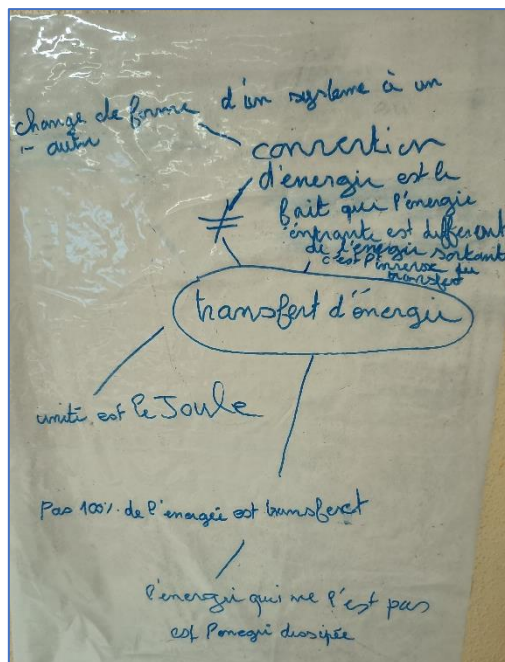 change de forme d'un système à un
autre
convertion
d'énergie est le
fait que l'énergie
entrante est different
de l'énergie sortant
c'est l'inverse du
transfert
≠
transfert d'énergie
unité est le Joule
Pas 100% de l'énergie est transferet
l'énergie qui ne l'est pas
est l'onegi dissipée